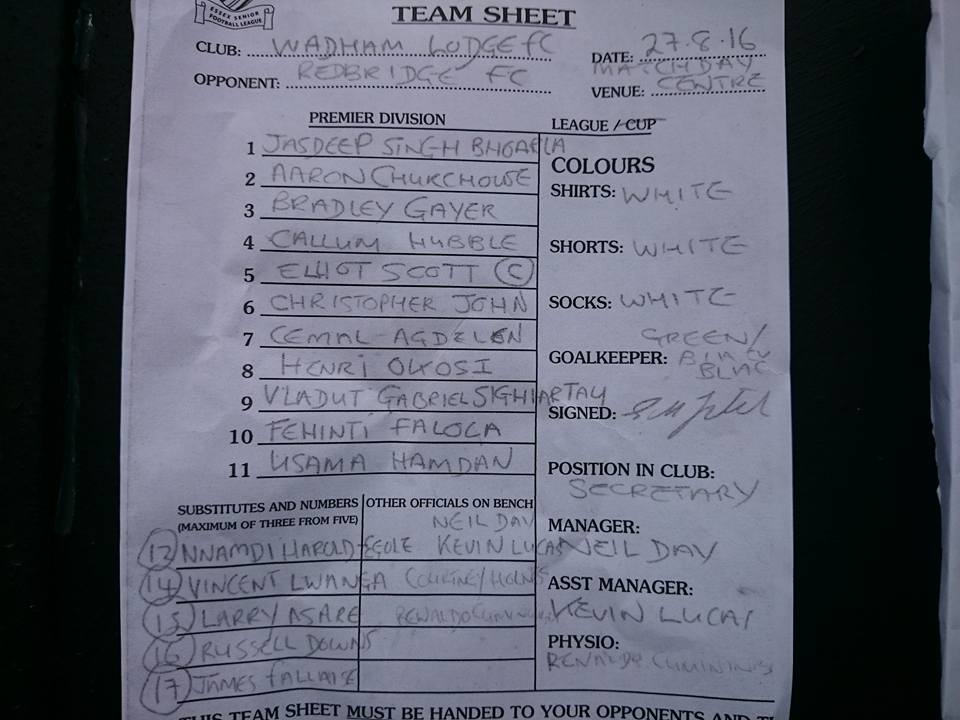 ESSEX SENIOR
FOOTBALL LEAGUE
TEAM SHEET
CLUB: WADHAM LODGE FC
DATE: 27.8.16
OPPONENT: REDBRIDGE FC
VENUE: MATCHDAY CENTRE
PREMIER DIVISION
1 JASDEEP SINGH
2 AARON CHURCHOUSE
3 BRADLEY GAYER
4 CALLUM HUBBLE
5 ELLIOT SCOTT (C)
6 CHRISTOPHER JOHN
7 CEMAL AGDELEN
8 HENRI
9 VLADUT GABRIEL SIGHIARTAU
10 FEHINTI FALOLA
11 USAMA HAMDAN
LEAGUE / CUP
COLOURS
SHIRTS: WHITE
SHORTS: WHITE
SOCKS: WHITE
GOALKEEPER: GREEN/
SIGNED:
POSITION IN CLUB:
SECRETARY
MANAGER:
NEIL DAY
ASST MANAGER:
KEVIN LUCAS
PHYSIO:
RENALDO CUMMINGS
SUBSTITUTES AND NUMBERS
(MAXIMUM OF THREE FROM FIVE)
12 NNAMDI HAROLD-EGOLE
14 VINCENT LWANGA
15 LARRY ASARE
16 RUSSELL DOWNS
17 JAMES
OTHER OFFICIALS ON BENCH
NEIL DAY
KEVIN LUCAS
COURTNEY
RENALDO
THIS TEAM SHEET MUST BE HANDED TO YOUR OPPONENTS AND